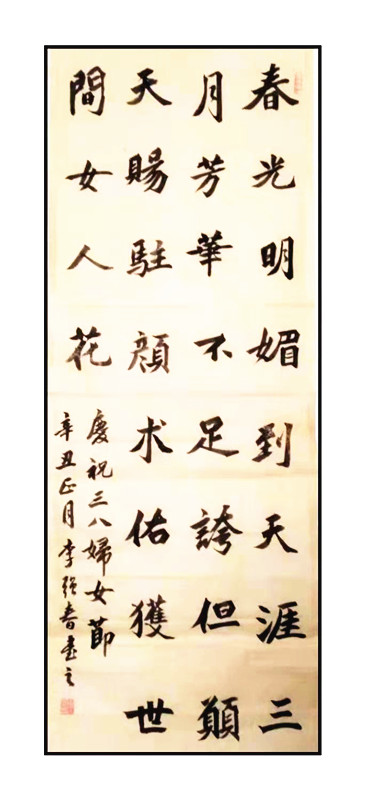 春光明媚到天涯三
月芳華不足誇但願
天賜駐顔术佑獲世
間女人花
慶祝三八婦女節
辛丑正月李强春書之